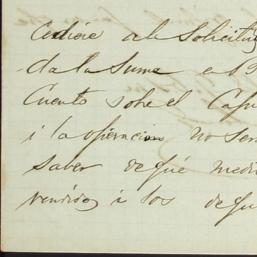 Cediere a la Solicitu
da la Suma
Cuento sobre el
i la operacion no ser
saber de qué medi
vendidos i los de qu